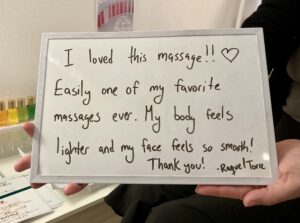 I loved this massage!! ♡
Easily one of my favorite
massages ever. My body feels
lighter and my face feels so smooth!
Thank you! -Raquel Torre